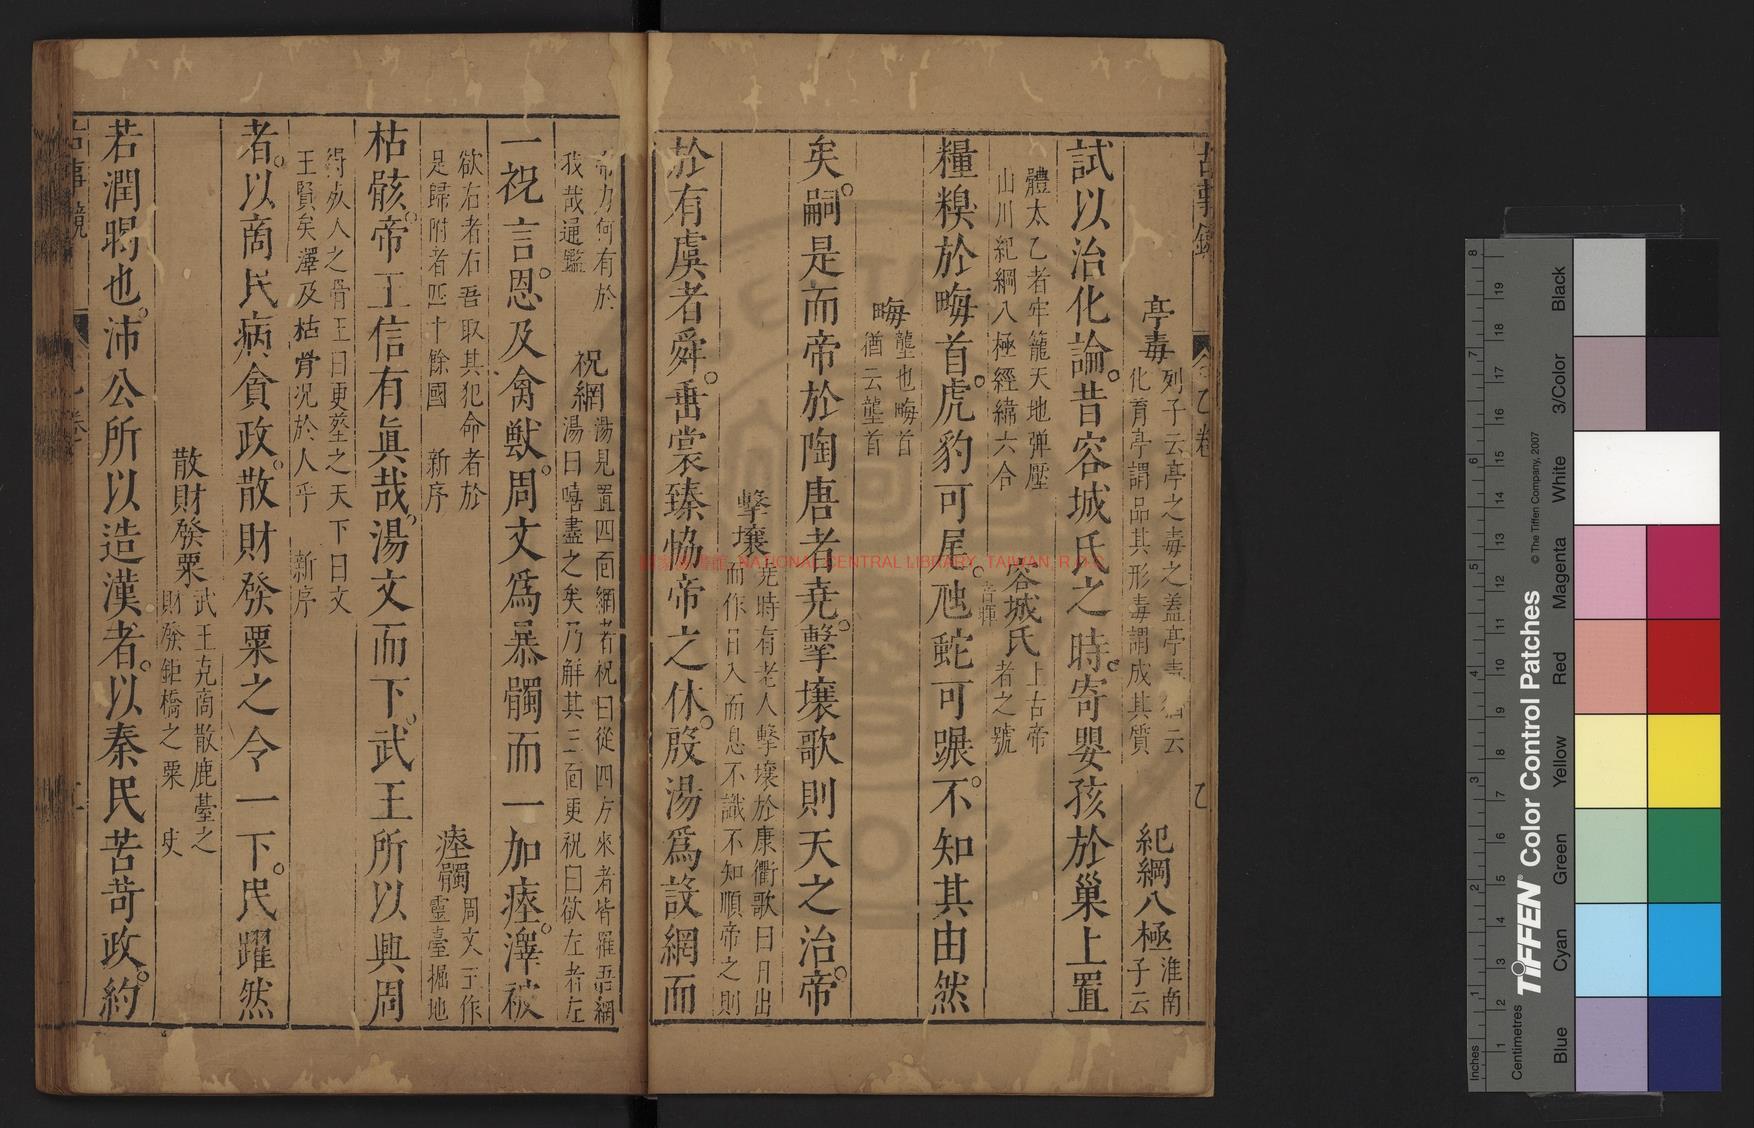 亭毒 列子云亭之毒之蓋亭毒 云
化育亭謂品其形毒謂成其質
紀綱八極 淮南
子云
試以治化論。昔容城氏之時。寄嬰孩於巢上置
體太乙者牢籠天地彈壓
山川紀綱八極經緯六合
容城氏 上古帝
者之號
糧糗於畮首。虎豹可尾。虺蛇可蹍。不知其由然
畮 壟也畮首
猶云壟首
矣。嗣是而帝於陶唐者堯。擊壤歌則天之治。帝
擊壤 堯時有老人擊壤於康衢歌曰日出
而作日入而息不識不知順帝之則
於有虞者舜。垂裳臻恊帝之休。殷湯爲設網而
帝力何有於
我哉通鑑
祝網 湯見置四面網者祝曰從四方來者皆羅吾網
湯曰嘻盡之矣乃解其三面更祝曰欲左者左
一祝言。恩及禽獸。周文爲暴髑而一加瘞。澤被
欲右者右吾取其犯命者於
是歸附者四十餘國 新序
瘞髑 周文王作
靈臺掘地
枯骸。帝王信有眞哉。湯文而下。武王所以興周
得死人之骨王曰更葬之天下曰文
王賢矣澤及枯骨况於人乎 新序
者。以商民病貪政。散財發粟之令一下。民躍然
散財發粟 武王克商散鹿臺之
財發鉅橋之粟 史
若潤暍也。沛公所以造漢者。以秦民苦苛政。約
古事鏡
國家圖書館 NATIONAL CENTRAL LIBRARY, TAIWAN, R.O.C
TIFFEN® Color Control Patches
© The Tiffen Company, 2007
Inches
Centimetres
Blue
Cyan
Green
Yellow
Red
Magenta
White
3/Color
Black